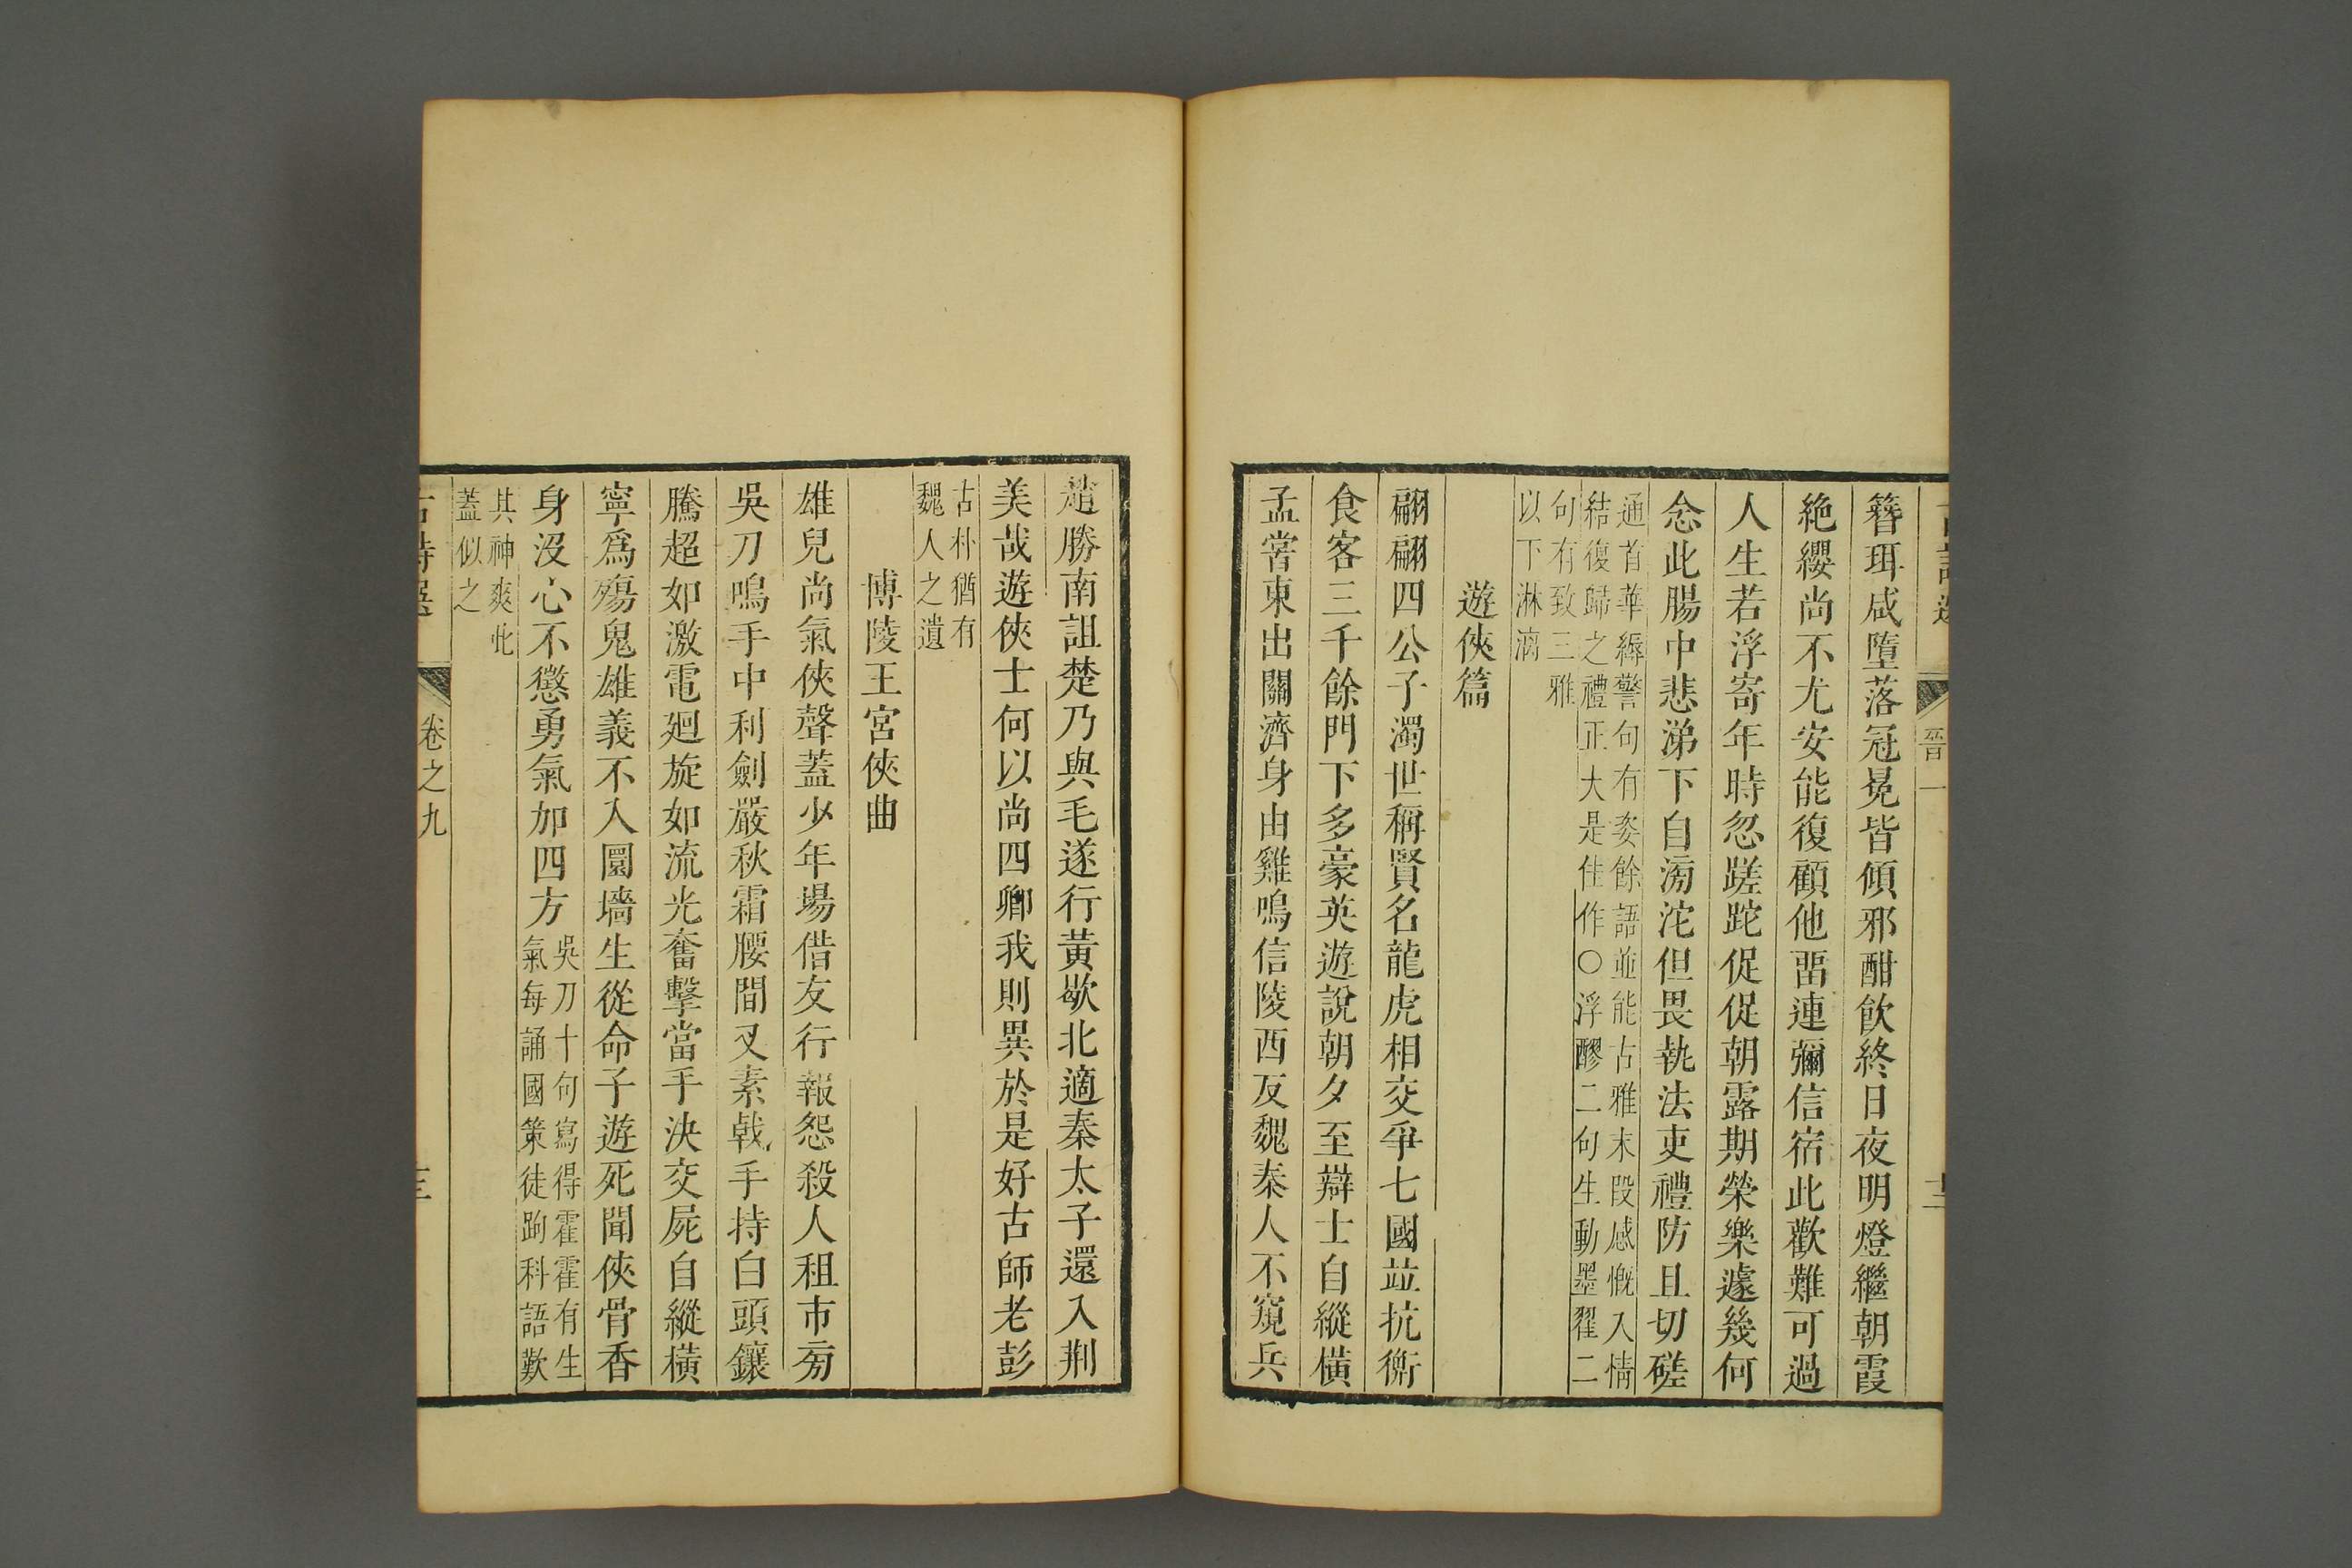 晉一
簪珥咸墮落冠冕皆傾邪酣飲終日夜明燈繼朝霞
絶纓尚不尤安能復顧他畱連彌信宿此歡難可過
人生若浮寄年時忽蹉跎促促朝露期榮樂遽幾何
念此腸中悲涕下自滂沱但畏執法吏禮防且切磋
通首華縟警句有姿餘語並能古雅末段感慨入情
結復歸之禮正大是佳作○浮醪二句生動墨翟二
句有致三雅
以下淋漓
遊俠篇
翩翩四公子濁世稱賢名龍虎相交爭七國竝抗衡
食客三千餘門下多豪英遊說朝夕至辯士自縱橫
孟嘗東出關濟身由雞鳴信陵西反魏秦人不窺兵
趙勝南詛楚乃與毛遂行黃歇北適秦太子還入荆
美哉遊俠士何以尚四卿我則異於是好古師老彭
古朴猶有
魏人之遺
博陵王宮俠曲
雄兒尚氣俠聲蓋少年場借友行報怨殺人租市旁
吳刀鳴手中利劍嚴秋霜腰間叉素戟手持白頭鑲
騰超如激電廻旋如流光奮擊當手決交屍自縱橫
寧爲殤鬼雄義不入圜墻生從命子遊死聞俠骨香
身沒心不懲勇氣加四方
吳刀十句寫得霍霍有生
氣每誦國策徒跔科語歎
其神爽此
蓋似之
卷之九